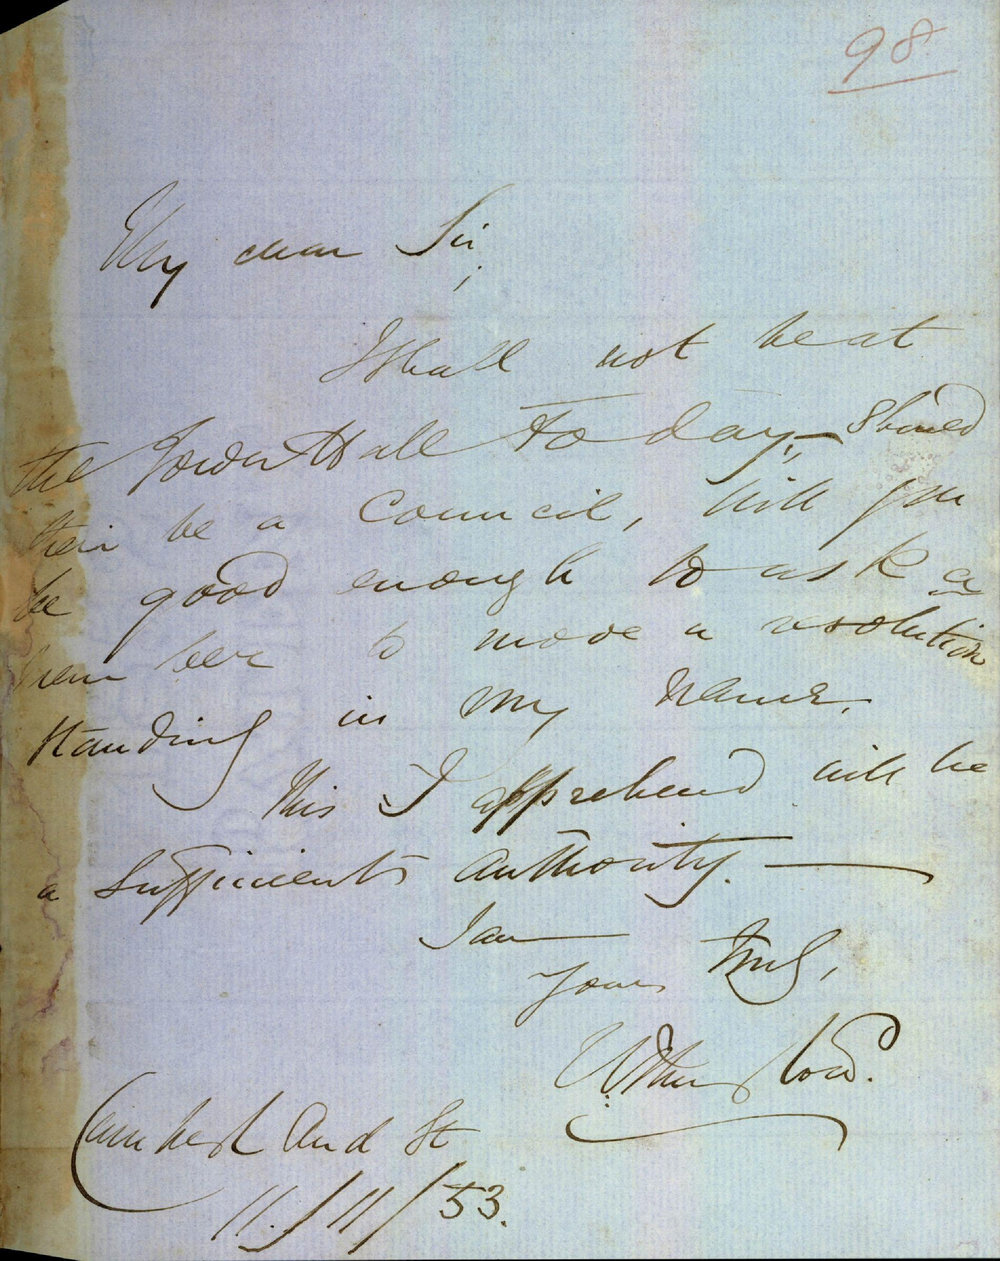 98.
My dear Sir,
I Shall not be at
the Town Hall To day, – Should
their be a Council, will you
be good enough to ask a
member to move a resolution
standing in my name.
This I apprehend will be
a Sufficient authority. —
I am
Yours truly,
Camberland St
11/11/53.